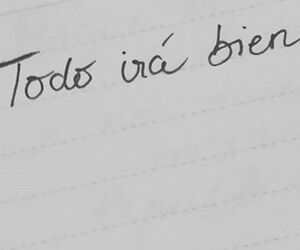 Todo irá bien